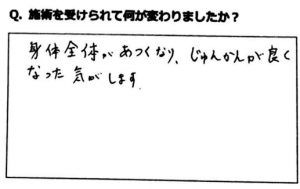 Q. 施術を受けられて何が変わりましたか？
身体全体があつくなり、じゅんかんが良く
なった気がします.